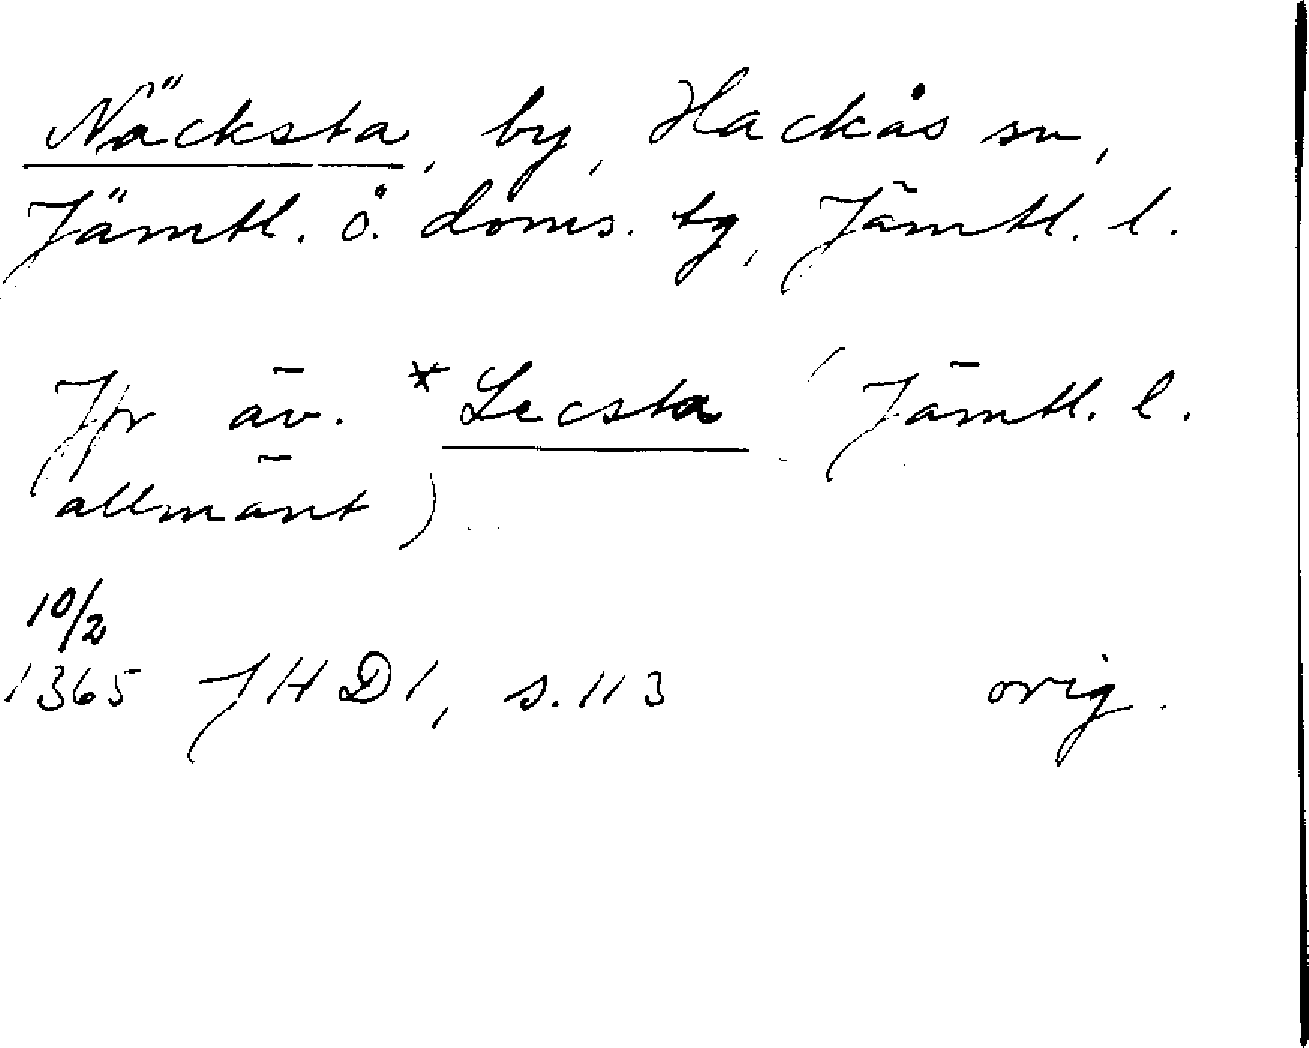 Näcksta, by, Hackås sn,
Jämtl. ö. doms. tg, Jämtl. l.
Jfr äv. *Lecsta (Jämtl. l.
allmänt)
10/2
1365 JHD1, s. 113 orig.